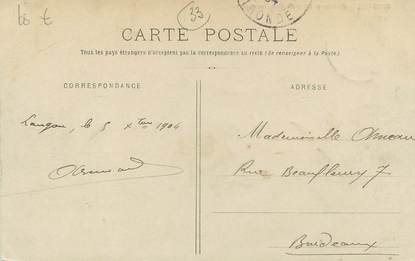 66 €
33
GIRONDE
CARTE POSTALE
Tous les pays étrangers n'acceptent pas la correspondance au recto (Se renseigner à la Poste.)
CORRESPONDANCE
ADRESSE
Langon, le 5 Xbre 1904
Mademoiselle
Rue Beaufleury 7
Bordeaux